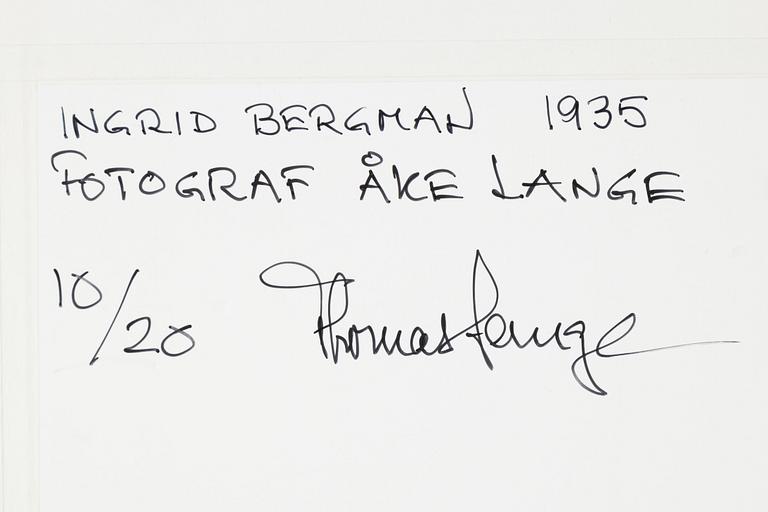 INGRID BERGMAN 1935
FOTOGRAF ÅKE LANGE
10/20 Thomas Lange